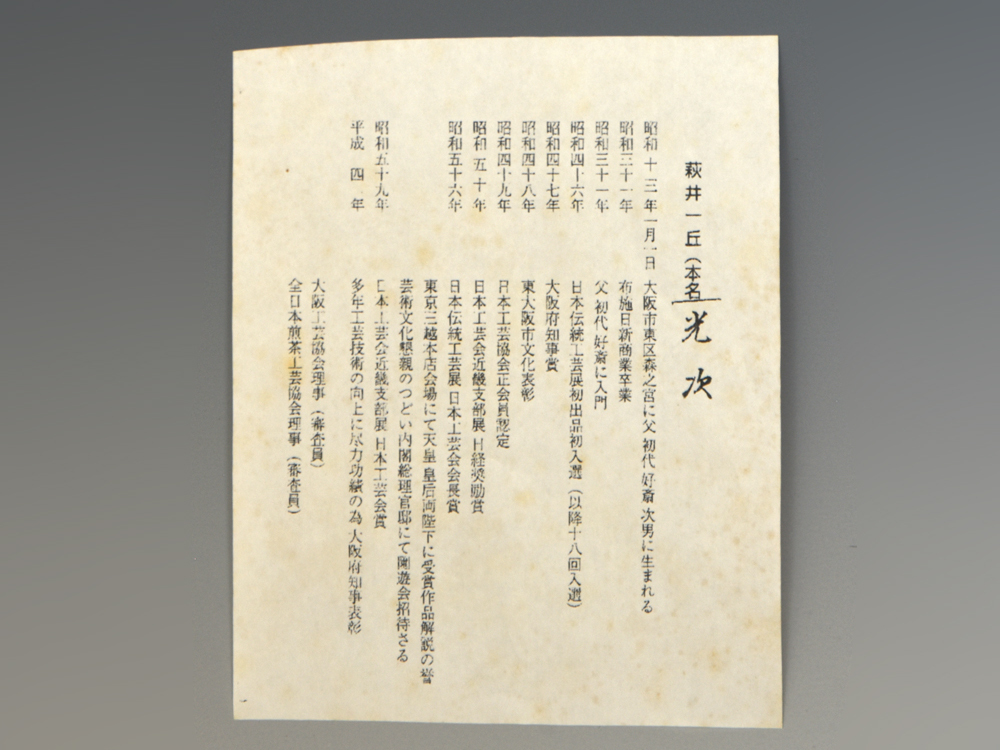 萩井一丘（本名光次
昭和十三年一月一日 大阪市東区森之宮に父 初代 好斎 次男に生まれる
昭和三十一年 布施日新商業卒業
昭和三十一年 父 初代 好斎に入門
昭和四十六年 日本伝統工芸展初出品初入選（以降十八回入選）
昭和四十七年 大阪府知事賞
昭和四十八年 東大阪市文化表彰
昭和四十九年 日本工芸協会正会員認定
昭和五十年 日本工芸会近畿支部展 日経奨励賞
昭和五十六年 日本伝統工芸展 日本工芸会会長賞
東京三越本店会場にて天皇 皇后両陛下に受賞作品解説の誉
芸術文化懇親のつどい内閣総理官邸にて園遊会招待さる
昭和五十九年 日本工芸会近畿支部展 日本工芸会賞
平成四年 多年工芸技術の向上に尽力功績の為 大阪府知事表彰
大阪工芸協会理事（審査員）
全日本煎茶工芸協会理事（審査員）